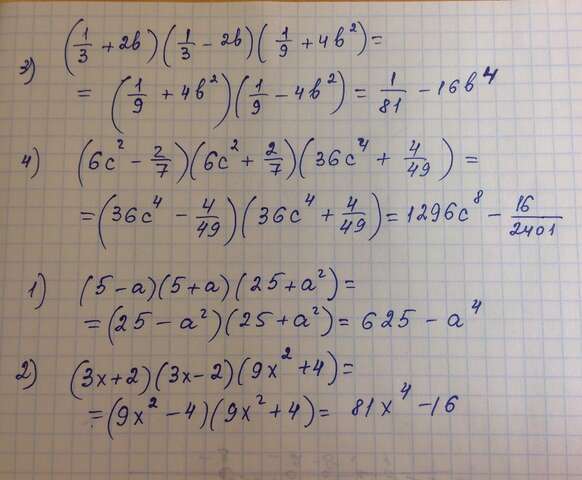 3) (1/3 + 2b)(1/3 - 2b)(1/9 + 4b²) =
= (1/9 + 4b²)(1/9 - 4b²) = 1/81 - 16b⁴
4) (6c² - 2/7)(6c² + 2/7)(36c⁴ + 4/49) =
= (36c⁴ - 4/49)(36c⁴ + 4/49) = 1296c⁸ - 16/2401
1) (5 - a)(5 + a)(25 + a²) =
= (25 - a²)(25 + a²) = 625 - a⁴
2) (3x + 2)(3x - 2)(9x² + 4) =
= (9x² - 4)(9x² + 4) = 81x⁴ - 16